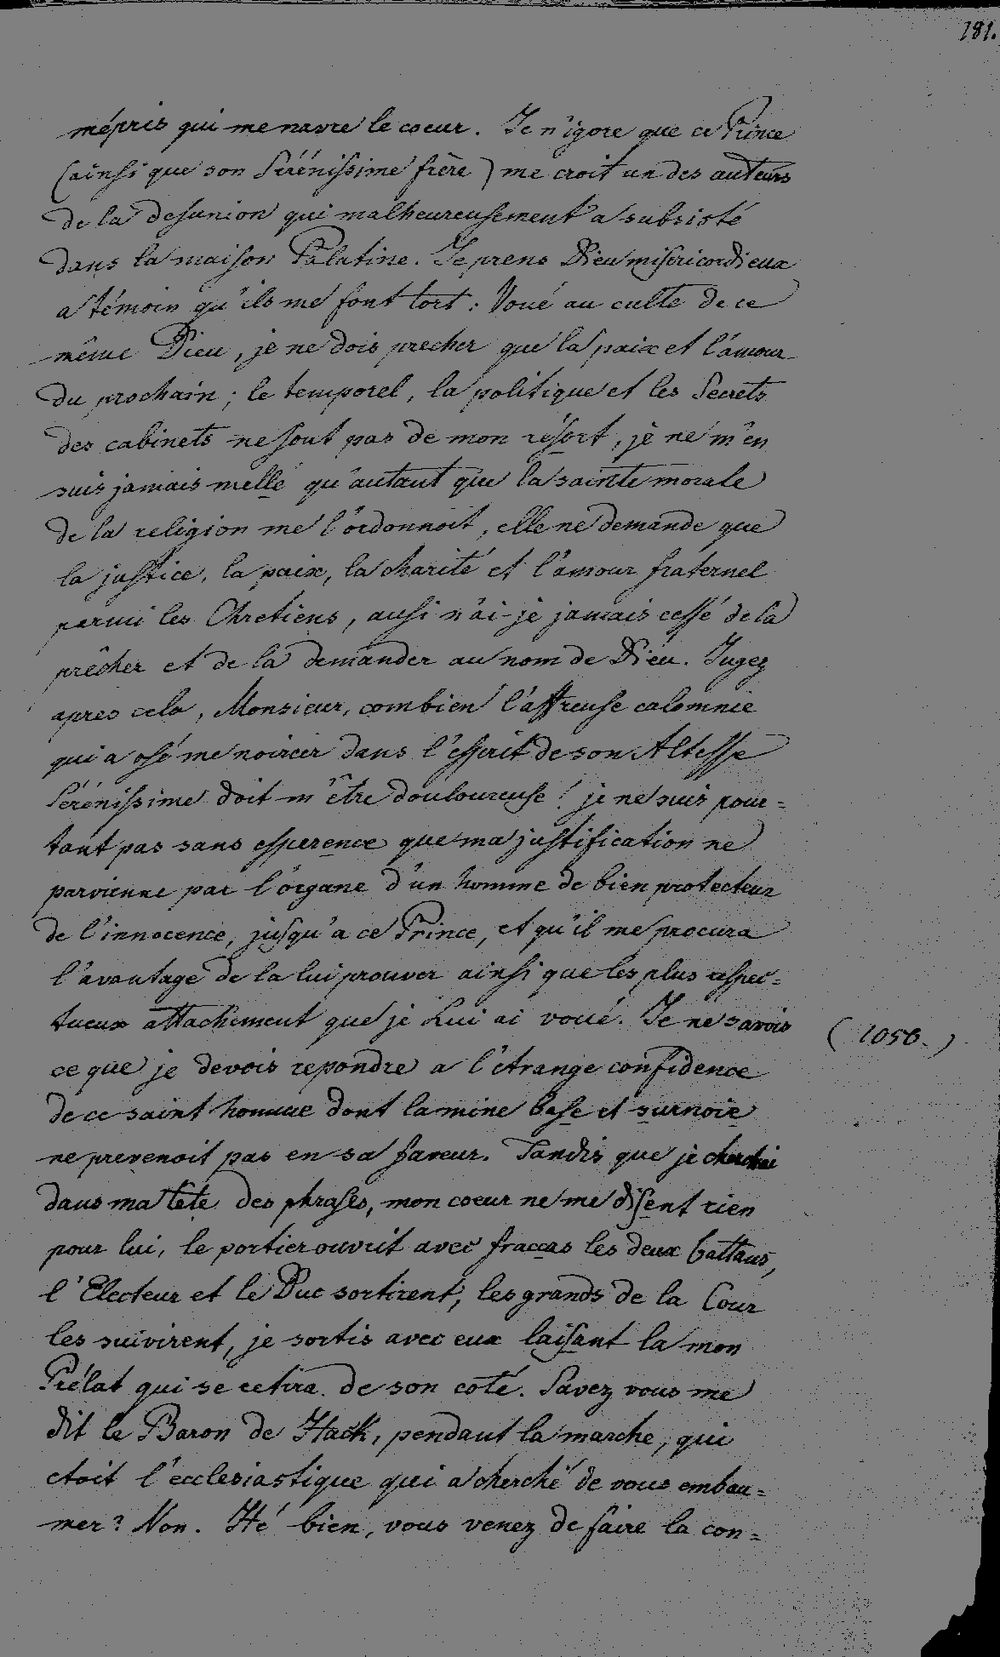 181.
mépris qui me navre le coeur. Je n'igore que ce Prince
(ainsi que son Sérénissime frère) me croit un des auteurs
de la desunion qui malheureusement a subsisté
dans la maison Palatine. Je prens Dieu misericordieux
a témoin qu'ils me font tort : Voué au culte de ce
même Dieu, je ne dois precher que la paix et l'amour
du prochain ; le temporel, la politique et les Secrets
des cabinets ne sont pas de mon résort, je ne m'en
suis jamais mellé qu'autant que la sainte morale
de la religion me l'ordonnoit, elle ne demande que
la justice, la paix, la charité et l'amour fraternel
parmi les Chretiens, aussi n'ai-je jamais cessé de la
prêcher et de la demander au nom de Dieu. Jugez
apres cela, Monsieur, combien l'affreuse calomnie
qui a osé me noircir dans l'esprit de son Altesse
Sérénissime doit m'être douloureuse ! je ne suis pour=
tant pas sans esperence que ma justification ne
parvienne par l'organe d'un homme de bien protecteur
de l'innocence, jusqu'a ce Prince, et qu'il me procura
l'avantage de la lui prouver ainsi que les plus respec=
tueux attachement que je Lui ai voué. Je ne savois
(1056.)
ce que je devois repondre a l'étrange confidence
de ce saint homme dont la mine base et surnoie
ne prevenoit pas en sa faveur. Tandis que je cherchai
dans ma tete des phrases, mon coeur ne me disent rien
pour lui, le portier ouvrit avec fraccas les deux battans,
l'Electeur et le Duc sortirent, les grands de la Cour
les suivirent, je sortis avec eux laisant la mon
Prélat qui se retira de son coté. Savez vous me
dit le Baron de Hack, pendant la marche, qui
etoit l'ecclesiastique qui a cherché de vous embau=
mer ? Non. Hé bien, vous venez de faire la con=